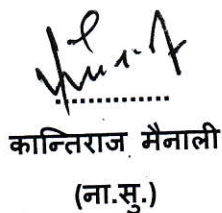 कान्तिराज मैनाली
(ना.सु.)